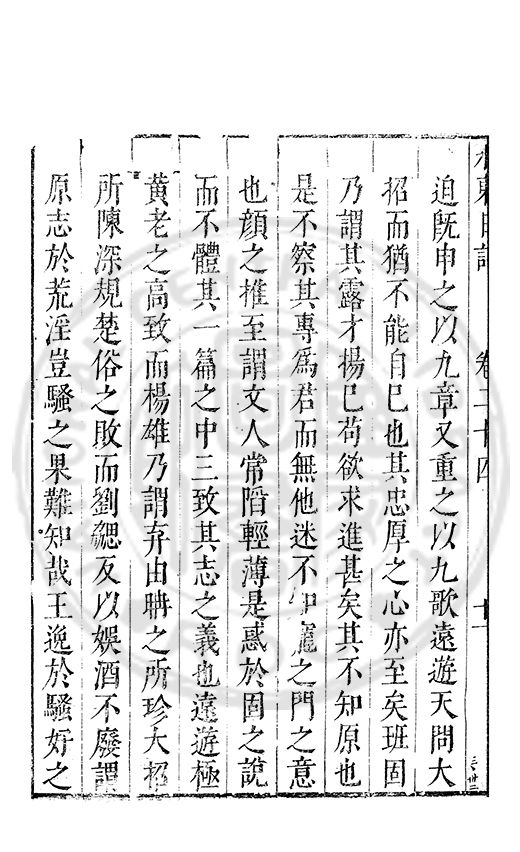 水東日記　卷二十四　十一
迫旣申之以九章又重之以九歌遠遊天問大
招而猶不能自巳也其忠厚之心亦至矣班固
乃謂其露才揚巳苟欲求進甚矣其不知原也
是不察其專爲君而無他迷不知寵之門之意
也顔之推至謂文人常陷輕薄是惑於固之說
而不體其一篇之中三致其志之義也遠遊極
黄老之高致而楊雄乃謂弃由聃之所珍大招
所陳深規楚俗之敗而劉勰反以娛酒不廢謂
原志於荒淫豈騷之果難知哉王逸於騷好之